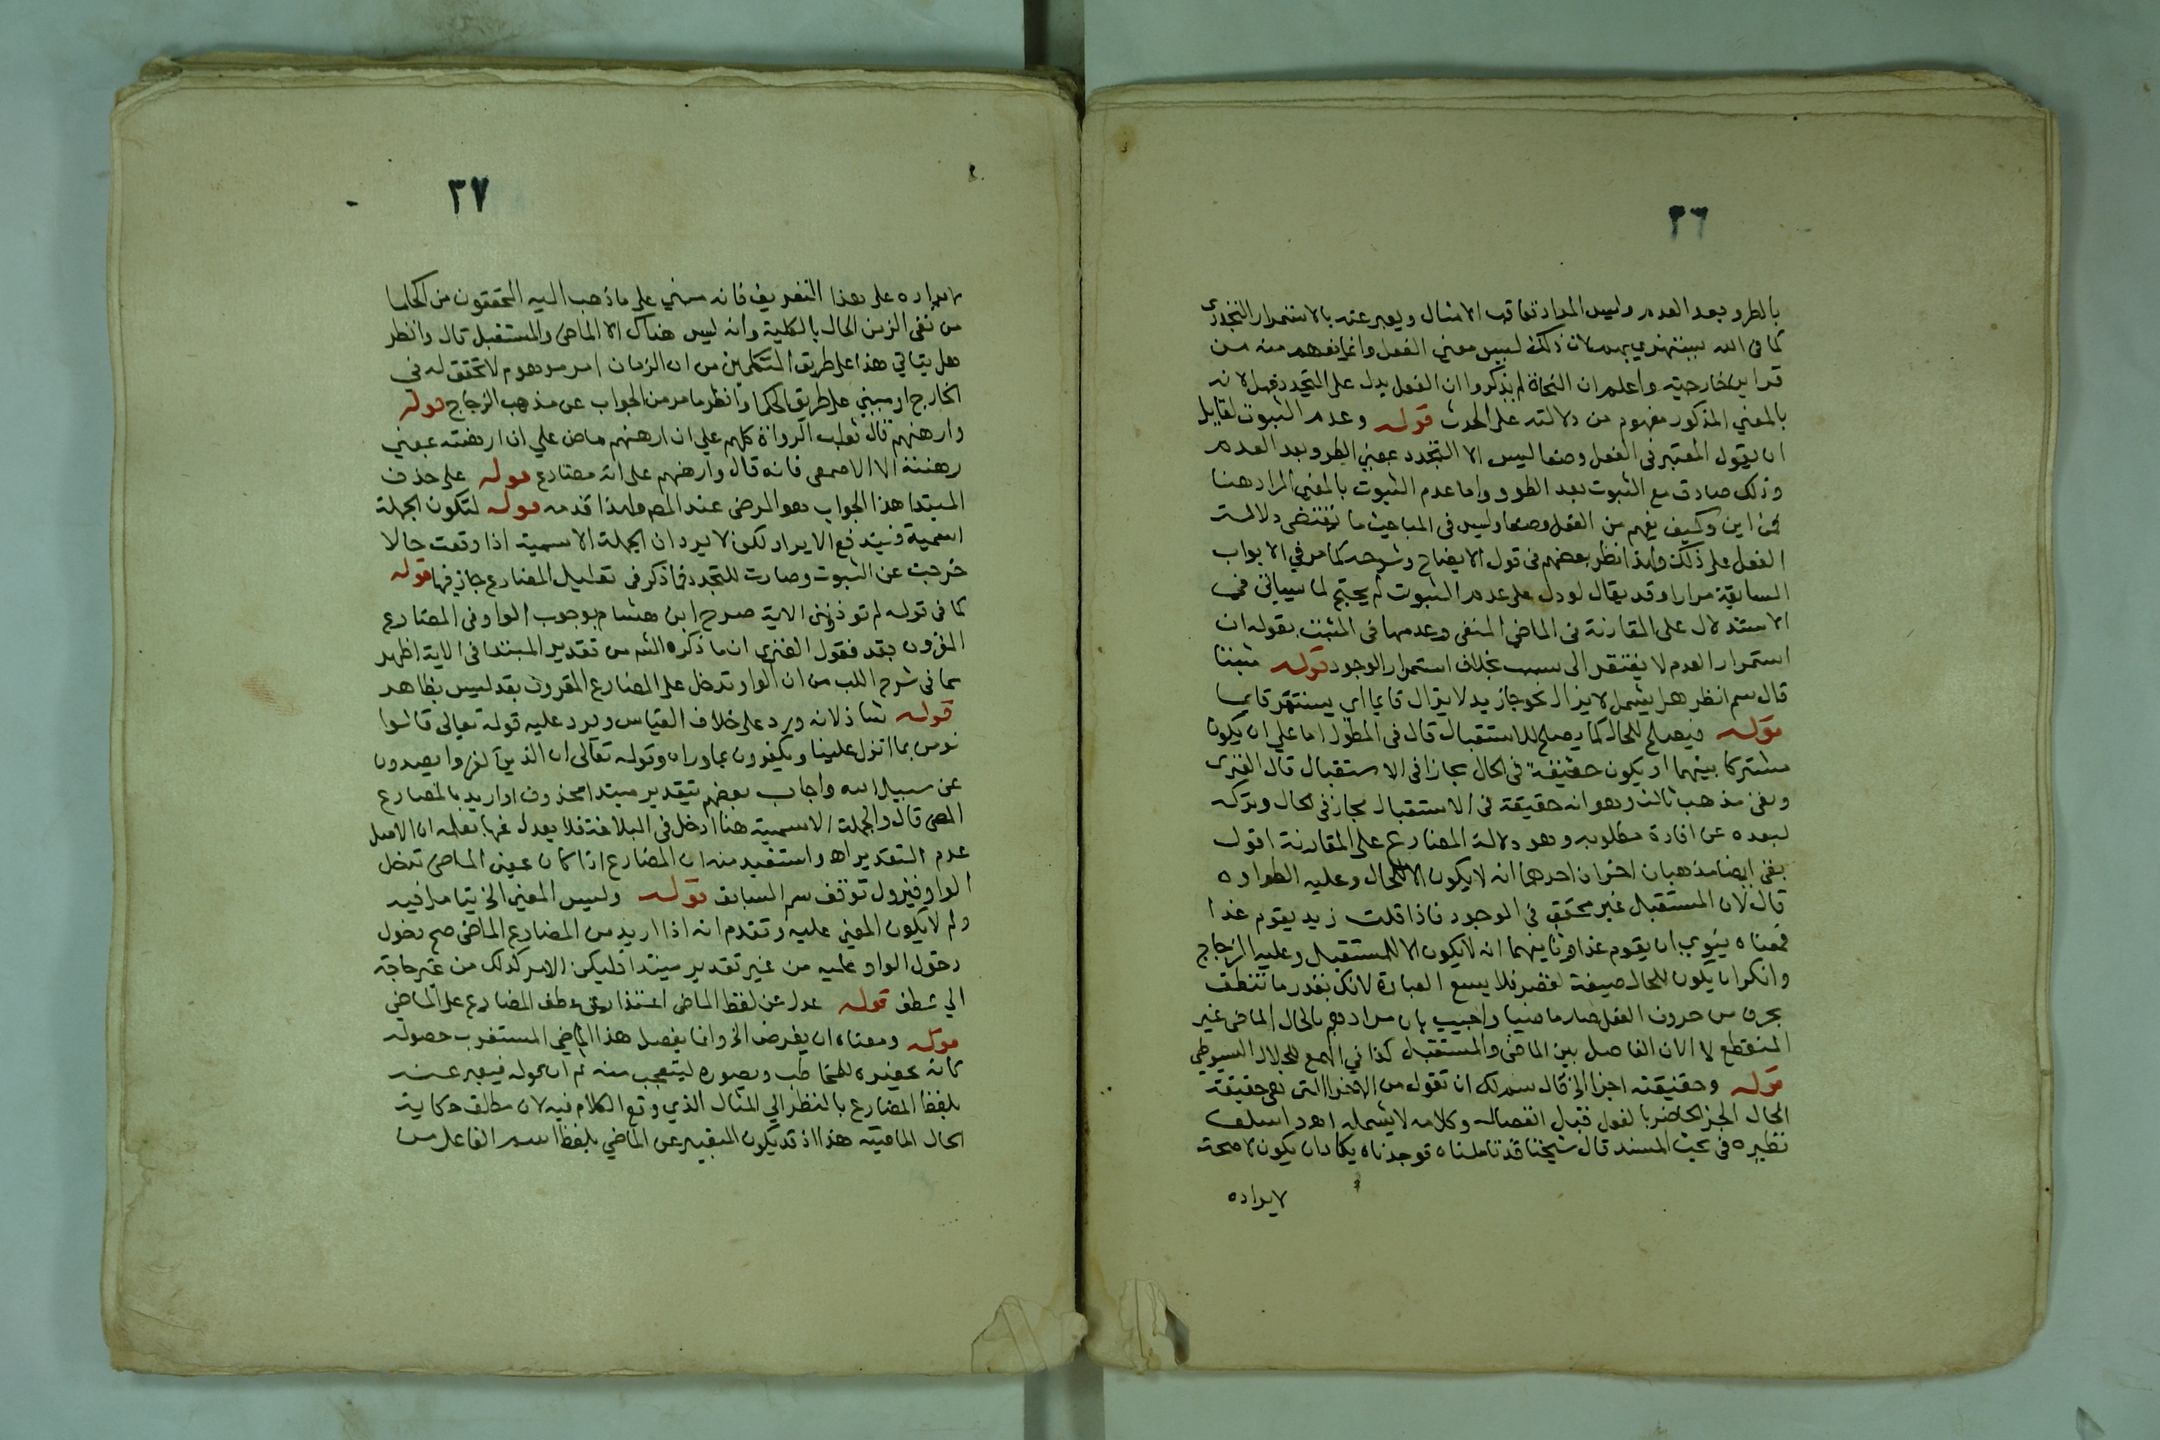 ٣٦
بالطرو بعد العدم وليس المراد تعاقب الامثال ويعبر عنه بالاستمرار التجددي
كما في الله يستهزي بهم لان ذلك ليس معني الفعل وانما يفهم منه من
قراين خارجية واعلم ان النحاة لم يذكروا ان الفعل يدل علي التجدد قيل لانه
بالمعني المذكور مفهوم من دلالته علي الحدث قوله وعدم الثبوت لقايل
ان يقول المعتبر في الفعل وضعا ليس الا التجدد بمعني الطرو بعد العدم
وذلك صادق مع الثبوت بعد الطرو واما عدم الثبوت بالمعني المراد هنا
فمن اين وكيف يفهم من الفعل وضعا وليس في المباحث ما يقتضي دلالة
الفعل علي ذلك ولهذا نظر بعضهم في قول الايضاح وشرحه كما مر في الابواب
السابقة مرارا وقد يقال لو دل علي عدم الثبوت لم يحتج لما سياتي في
الاستدلال علي المقارنة في الماضي المنفي وعدمها في المثبت بقوله ان
استمرار العدم لا يفتقر الي سبب بخلاف استمرار الوجود قوله مثبتا
قال سم انظر هل يشمل لا يزال نحو جا زيد لا يزال قايما اي يستمر قايما
قوله فيصلح للحال كما يصلح للاستقبال قال في المطول اما علي ان يكون
مشتركا بينهما او يكون حقيقة في الحال مجازا في الاستقبال قال الفنري
وبقي مذهب ثالث وهو انه حقيقة في الاستقبال مجاز في الحال وتركه
لبعده عن افادة مطلوبه وهو دلالة المضارع علي المقارنة اقول
بقي ايضا مذهبان اخران احدهما انه لا يكون الا للحال وعليه الطراوه
قال لان المستقبل غير محقق في الوجود فاذا قلت زيد يقوم غدا
فمعناه ينوي ان يقوم غدا وثانيهما انه لا يكون الا للمستقبل وعليه الزجاج
وانكر ان يكون للحال صيغة لقصره فلا يسع العبارة لانك بقدر ما تنطق
بحرف من حروف الفعل صار ماضيا واجيب بان مرادهم بالحال الماضي غير
المنقطع لا الان الفاصل بين الماضي والمستقبل كذا في الهمع للجلال السيوطي
قوله وحقيقته اجزا الخ قال سم لك ان تقول من الاجزا التي هي حقيقة
الحال الجز الحاضر بالفعل قبل انفصاله وكلامه لا يشمله اهـ واسلف
نظيره في بحث المسند قال شيخنا قد تاملناه فوجدناه يكاد ان يكون لا صحة
لايراده
٣٧
لايراده علي هذا التعريف فانه مبني علي ما ذهب اليه المحققون من الحكما
من نفي الزمن الحال بالكلية وانه ليس هناك الا الماضي والمستقبل قال وانظر
هل يتاتي هذا علي طريق المتكلمين من ان الزمان امر موهوم لا تحقق له في
الخارج او مبني علي طريق الحكما وانظر ما مر من الجواب عن مذهب الزجاج قوله
وارهنهم قال ثعلب الرواة كلهم علي ان ارهنهم ماض علي ان ارهنته بمعني
رهنته الا الاصمعي فانه قال وارهنهم علي انه مضارع قوله علي حذف
المبتدا هذا الجواب هو المرضي عند المص ولهذا قدمه قوله لتكون الجملة
اسمية فيندفع الايراد لكن لا يرد ان الجملة الاسمية اذا وقعت حالا
خرجت عن الثبوت وصارت للتجدد فما ذكر في تعليل المضارع جاز فيها قوله
كما في قوله لم تؤذونني الاية صرح ابن هشام بوجوب الواو في المضارع
المقرون بقد فقول الفنري ان ما ذكره الش من تقدير المبتدا في الاية اظهر
مما في شرح اللب من ان الواو تدخل علي المضارع المقرون بقد ليس بظاهر
قوله شاذ لانه ورد علي خلاف القياس ويرد عليه قوله تعالي قالوا
نومن بما انزل علينا ويكفرون بما وراه وقوله تعالي ان الذين كفروا ويصدون
عن سبيل الله واجاب بعضهم بتقدير مبتدا محذوف او اريد بالمضارع
المضي قال والجملة الاسمية هنا ادخل في البلاغة فلا يعدل عنها بعلة ان الاصل
عدم التقدير اهـ واستفيد منه ان المضارع اذا كان بمعني الماضي تدخل
الواو فيزول توقف سم السابق قوله وليس المعني الخ يتامل فيه
ولم لا يكون المعني عليه وتقدم انه اذا اريد من المضارع الماضي صح دخول
دخول الواو عليه من غير تقدير مبتدا فليكن الامر كذلك من غير حاجة
الي عطف قوله عدل عن لفظ الماضي اعتذار عن عطف المضارع علي الماضي
قوله ومعناه ان يفرض الخ وانما يفعل هذا الماضي المستغرب حصوله
كانه تحضره للمخاطب وتصوره ليتعجب منه ثم ان قوله فيعبر عنه
بلفظ المضارع بالنظر الي المثال الذي وقع الكلام فيه لان مطلق حكاية
الحال الماضية هذا اذ قد يكون التعبير عن الماضي بلفظ اسم الفاعل من